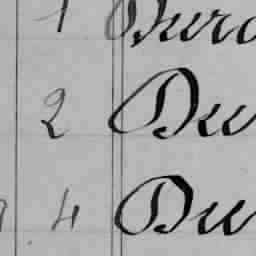 1 Durc
2 Du
4 Du